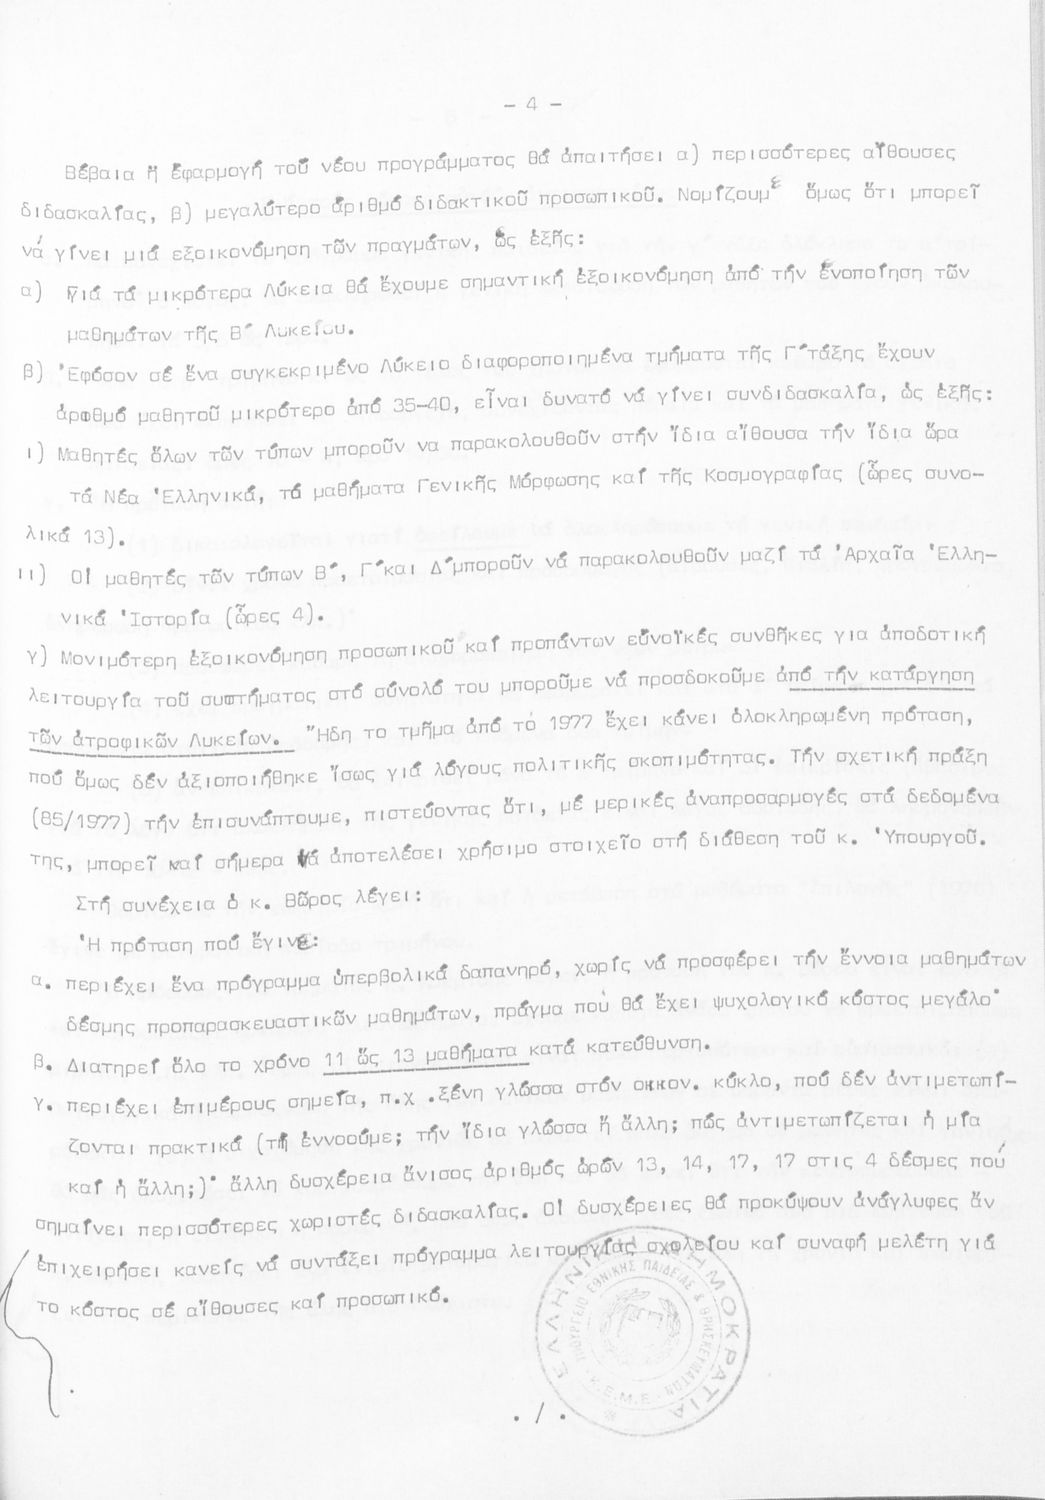 - 4 -
Βέβαια ἡ ἐφαρμογή τοῦ νέου προγράμματος θά ἀπαιτήσει α) περισσότερες αἴθουσες
διδασκαλίας, β) μεγαλύτερο ἀριθμό διδακτικοῦ προσωπικοῦ. Νομίζουμε ὅμως ὅτι μπορεῖ
νά γίνει μιά εξοικονόμηση τῶν πραγμάτων, ὡς ἑξῆς:
α) Γιά τά μικρότερα Λύκεια θά ἔχουμε σημαντική ἐξοικονόμηση ἀπό τήν ἑνοποίηση τῶν
μαθημάτων τῆς Β΄ Λυκείου.
β) Ἐφόσον σέ ἕνα συγκεκριμένο Λύκειο διαφοροποιημένα τμήματα τῆς Γ΄τάξης ἔχουν
ἀριθμό μαθητοῦ μικρότερο ἀπό 35-40, εἶναι δυνατό νά γίνει συνδιδασκαλία, ὡς ἑξῆς:
ι) Μαθητές ὅλων τῶν τύπων μποροῦν να παρακολουθοῦν στήν ἴδια αἴθουσα τήν ἴδια ὥρα
τά Νέα Ἑλληνικά, τά μαθήματα Γενικῆς Μόρφωσης καί τῆς Κοσμογραφίας (ὧρες συνο-
λικά 13).
ιι) Οἱ μαθητές τῶν τύπων Β΄, Γ΄και Δ΄μποροῦν νά παρακολουθοῦν μαζί τά Ἀρχαῖα Ἑλλη-
νικά Ἱστορία (ὧρες 4).
γ) Μονιμότερη ἐξοικονόμηση προσωπικοῦ καί προπάντων εὐνοϊκές συνθῆκες για ἀποδοτική
λειτουργία τοῦ συστήματος στό σύνολό του μποροῦμε νά προσδοκοῦμε ἀπό τήν κατάργηση
τῶν ἀτροφικῶν Λυκείων. Ἤδη το τμῆμα ἀπό τό 1977 ἔχει κάνει ὁλοκληρωμένη πρόταση,
πού ὅμως δέν ἀξιοποιήθηκε ἴσως γιά λόγους πολιτικῆς σκοπιμότητας. Τήν σχετική πράξη
(85/1977) τήν ἐπισυνάπτουμε, πιστεύοντας ὅτι, μέ μερικές ἀναπροσαρμογές στά δεδομένα
της, μπορεῖ καί σήμερα νά ἀποτελέσει χρήσιμο στοιχεῖο στή διάθεση τοῦ κ. Ὑπουργοῦ.
Στή συνέχεια ὁ κ. Θῶρος λέγει:
Ἡ πρόταση πού ἔγινε:
α. περιέχει ἕνα πρόγραμμα ὑπερβολικά δαπανηρό, χωρίς νά προσφέρει τήν ἔννοια μαθημάτων
δέσμης προπαρασκευαστικῶν μαθημάτων, πράγμα πού θά ἔχει ψυχολογικό κόστος μεγάλο·
β. Διατηρεί ὅλο το χρόνο 11 ὥς 13 μαθήματα κατά κατεύθυνση.
γ. περιέχει ἐπιμέρους σημεῖα, π.χ .ξένη γλῶσσα στόν οικον. κύκλο, πού δέν ἀντιμετωπί-
ζονται πρακτικά (τί ἐννοοῦμε; τήν ἴδια γλῶσσα ἤ ἄλλη; πῶς ἀντιμετωπίζεται ἡ μία
καί ἡ ἄλλη;)· ἄλλη δυσχέρεια ἄνισος ἀριθμός ὡρῶν 13, 14, 17, 17 στις 4 δέσμες πού
σημαίνει περισσότερες χωριστές διδασκαλίας. Οἱ δυσχέρειες θά προκύψουν ἀνάγλυφες ἄν
ἐπιχειρήσει κανείς νά συντάξει πρόγραμμα λειτουργίας σχολείου καί συναφή μελέτη γιά
το κόστος σέ αἴθουσες καί προσωπικό.
ΕΛΛΗΝΙΚΗ ΔΗΜΟΚΡΑΤΙΑ
ΥΠΟΥΡΓΕΙΟ ΕΘΝΙΚΗΣ ΠΑΙΔΕΙΑΣ & ΘΡΗΣΚΕΥΜΑΤΩΝ
Κ.Ε.Μ.Ε.
./.